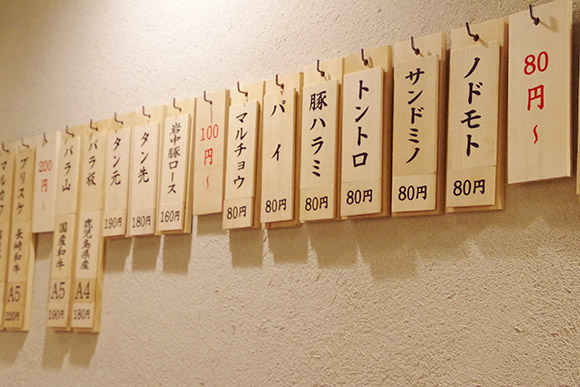 80円〜
ノドモト
80円
サンドミノ
80円
トントロ
80円
豚ハラミ
80円
パイ
80円
マルチョウ
80円
100円〜
岩中豚ロース
160円
タン先
180円
タン元
190円
バラ板
鹿児島県産
A4
180円
バラ山
国産和牛
A5
190円
200円〜
ブリスケ
長崎和牛
A5